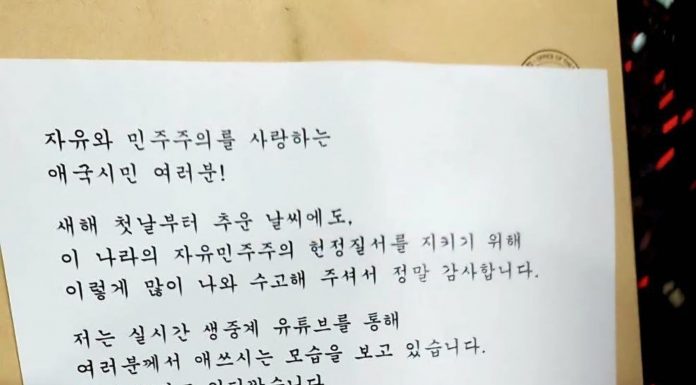 OFFICE OF THE
자유와 민주주의를 사랑하는
애국시민 여러분!
새해 첫날부터 추운 날씨에도,
이 나라의 자유민주주의 헌정질서를 지키기 위해
이렇게 많이 나와 수고해 주셔서 정말 감사합니다.
저는 실시간 생중계 유튜브를 통해
여러분께서 애쓰시는 모습을 보고 있습니다.